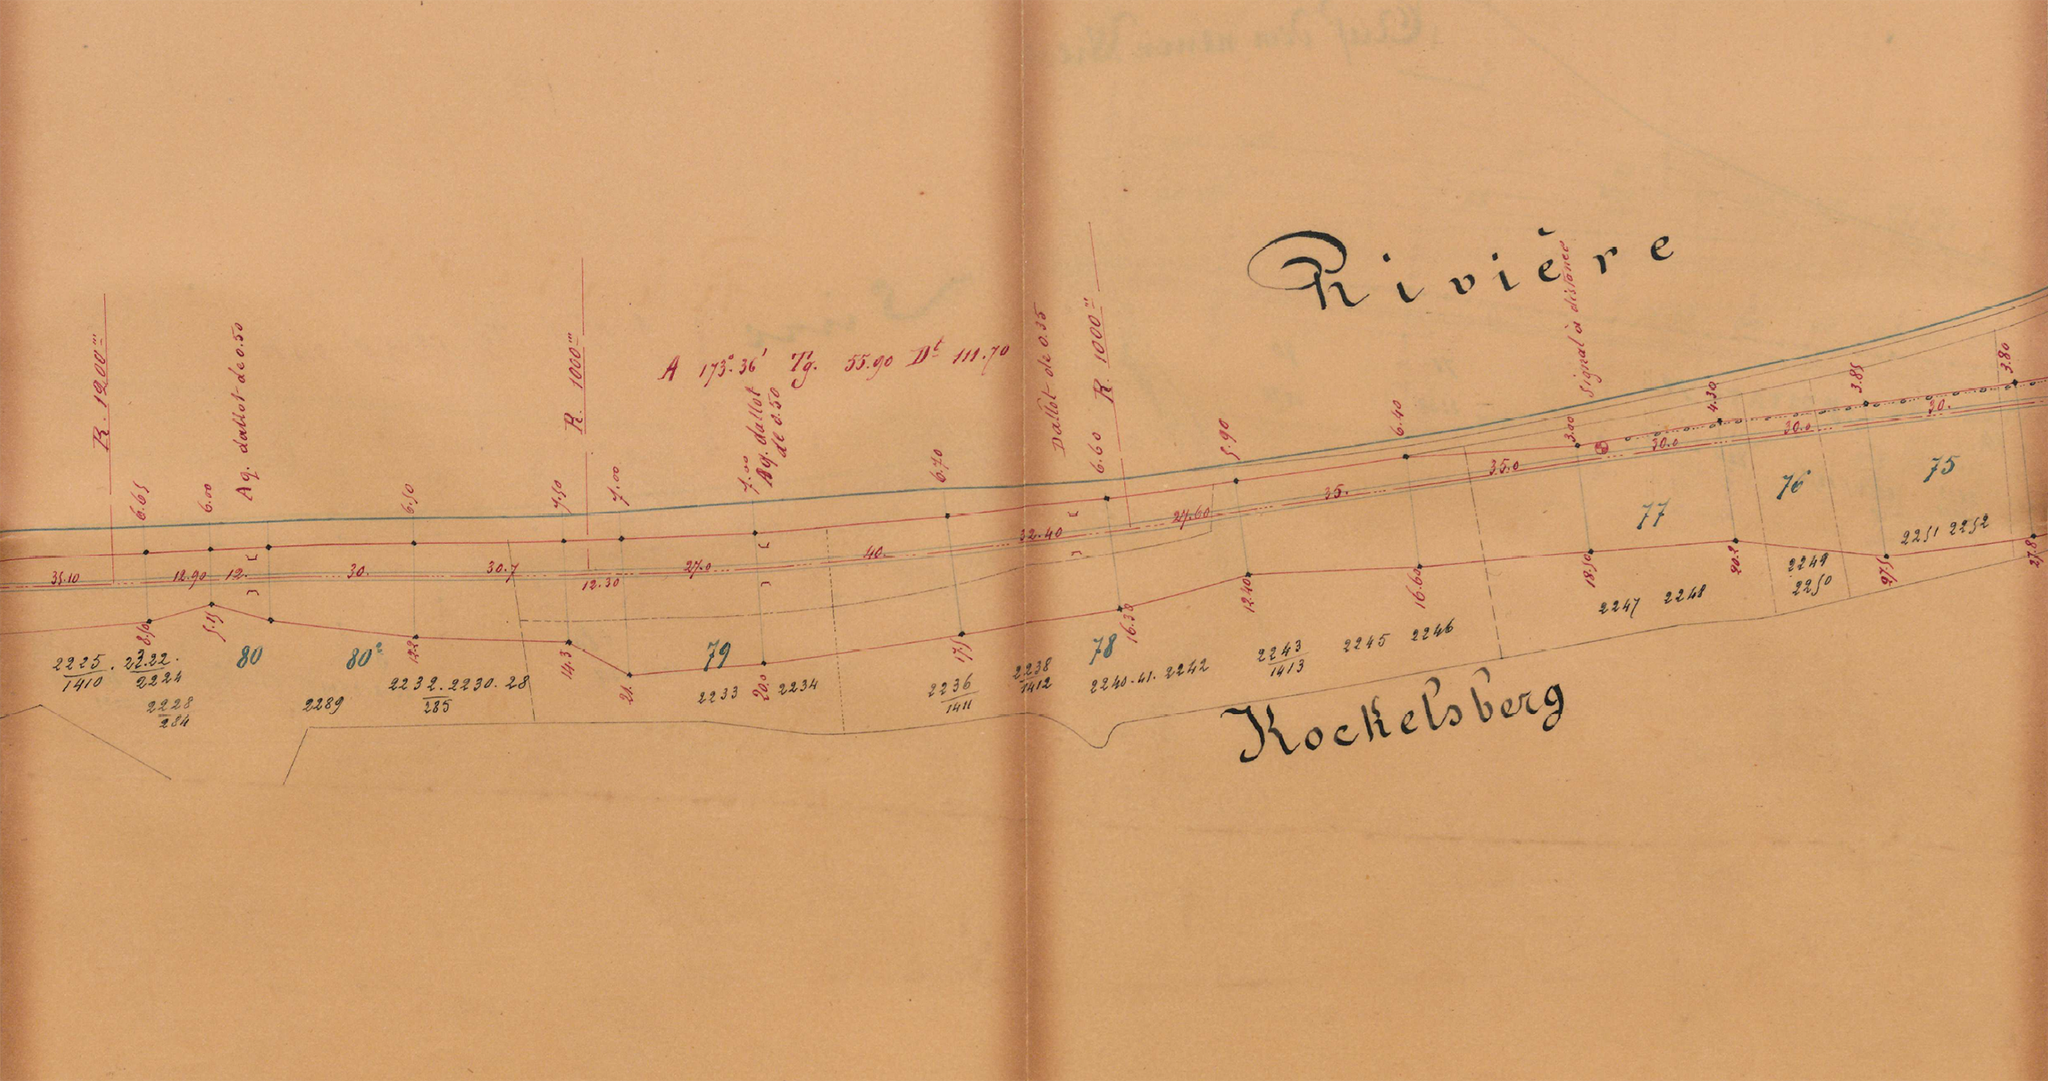 Rivière
R. 1200m
6.65
6.00
Aq. dallot de 0.50
6.50
7.50
R. 1000m
7.00
A 173°.36' Tg. 55.90 Dt 111.70
7.00
Aq. dallot
de 0.50
6.70
Dallot de 0.35
6.60
R. 1000m
5.90
6.40
Signal à distance
3.00
4.30
3.85
3.80
35.10
12.90
12.
30.
30.7
12.30
27.0
40.
32.40
27.60
35.
35.0
30.0
30.0
30.
8.50
5.15
12.2
14.3
21.
20.0
17.5
16.30
12.40
16.60
18.50
20.20
27.5
27.8
80
80²
79
78
77
76
75
2225
1410
22.22.
2224
2228
284
2289
2232.2230.28
285
2233
2234
2236
1411
2238
1412
2240.41.2242
2243
1413
2245 2246
2247 2248
2249
2250
2251 2252
Kockelsberg